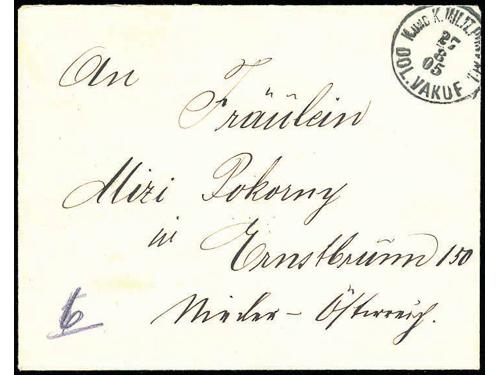 K. UND K. MILIT. POST
27
8
05
DOL. VAKUF
An
Fräulein
Mizi Pokorny
in
Ernstbrunn 150
Nieder-Österreich.
6